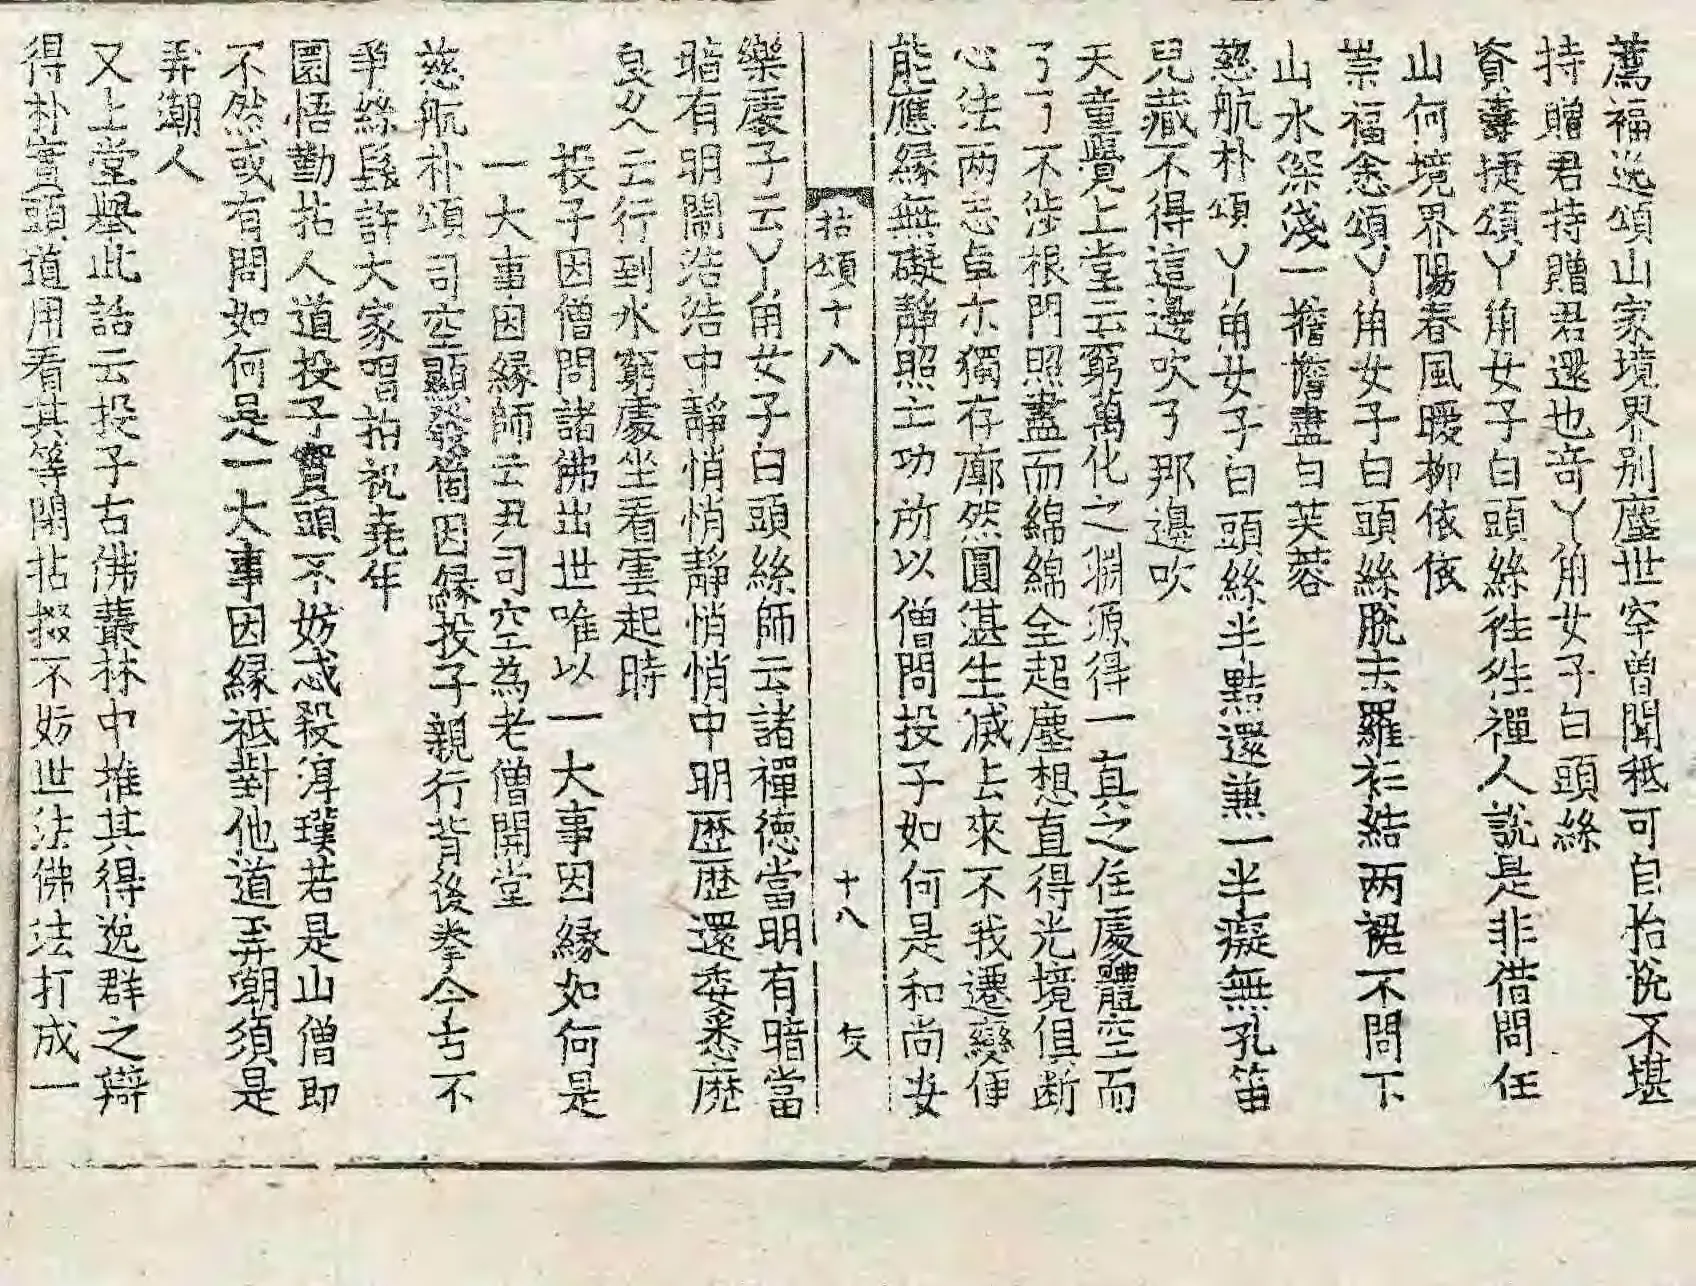 薦福逸頌山家境界別塵世罕曽聞秪可自怡悅不堪
持贈君持贈君還也竒丫角女子白頭絲
資壽捷頌丫角女子白頭絲徃徃禪人說是非借問任
山何境界陽春風曖柳依依
崇福悆頌丫角女子白頭絲脫去羅衫結两裙不問下
山水深淺一擔擔盡白芙蓉
慈航朴頌丫角女子白頭絲半點還兼一半癡無孔笛
兒藏不得這邊吹了那邊吹
天童覺上堂云窮萬化之淵源得一真之住處體空而
了了不涉根門照盡而綿綿全超塵想直得光境俱断
心法两忘卓尓獨存廓然圓湛生滅去來不我遷變便
能應縁無礙靜照亡功所以僧問投子如何是和尚安
拈頌十八 十八
樂處子云丫角女子白頭絲師云諸禪德當明有暗當
暗有明鬧浩浩中靜悄悄靜悄悄中明歴歴還委悉麽
良久云行到水窮處坐看雲起時
投子因僧問諸佛出世唯以一大事因縁如何是
一大事因縁師云尹司空為老僧開堂
慈航朴頌司空顯發箇因縁投子親行背後拳今古不
爭絲髮許大家唱拍祝堯年
圜悟勤拈人道投子實頭不妨忒殺淳璞若是山僧即
不然或有問如何是一大事因縁祇對他道弄潮須是
弄潮人
又上堂舉此話云投子古佛叢林中推其得逸群之辯
得朴實頭道用看其等閑拈掇不妨世法佛法打成一